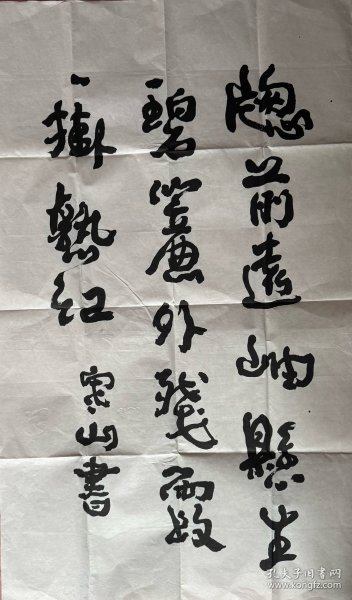 牕前遠岫懸生
碧簾外殘霞
掛熟紅
山書
孔夫子旧书网
www.kongfz.com